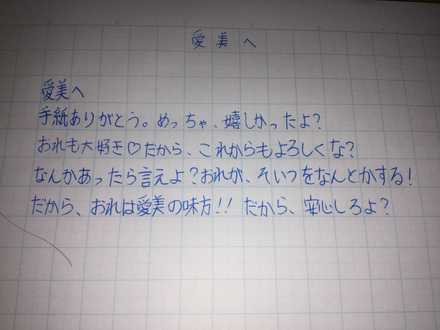 愛美へ
愛美へ
手紙ありがとう。めっちゃ、嬉しかったよ?
おれも大好き♡だから、これからもよろしくな?
なんかあったら言えよ?おれが、そいつをなんとかする!
だから、おれは愛美の味方!! だから、安心しろよ?